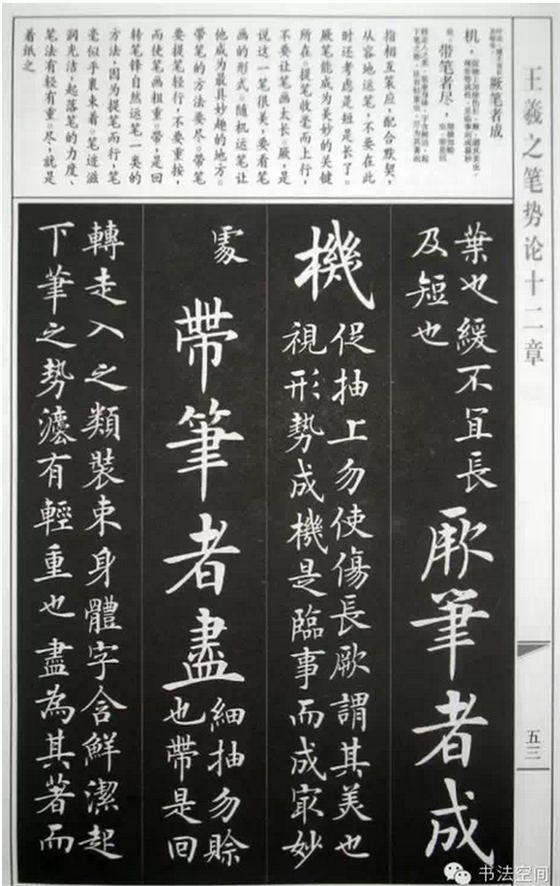 王羲之笔势论十二章
五三
厥笔者成
机，
带笔者尽，
指相互策应，配合默契，
从容地运笔，不要在此
时还考虑是短是长了。
厥笔能成为美妙的关键
所在。提笔收毫而上行，
不要让笔画太长。厥，是
说这一笔很美，要看笔
画的形式。随机运笔让
他成为最具妙趣的地方。
带笔的方法要尽。带笔
要提笔轻行，不要重按，
而使笔画粗重。带，是回
转笔锋自然运笔一类的
方法，因为提笔而行，笔
毫似乎裹束着。笔迹滋
润光洁，起落笔的力度、
笔法有轻有重。尽，就是
着纸之
葉也緩不宜長
及短也
厥筆者成
機
促抽上勿使傷長厥謂其美也
視形勢成機是臨事而成㝡妙
處
帶筆者盡
細抽勿賒
也帶是回
轉走入之類裝束身體字含鮮潔起
下筆之勢灋有輕重也盡為其著而
书法空间